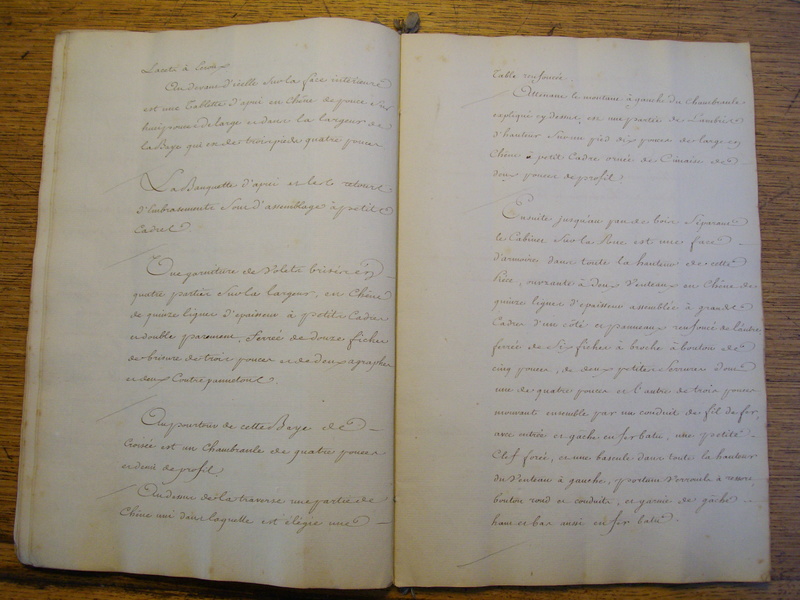 Lacets à
Au devant d'icelle sur la face interieure
est une Tablette d'apui en chêne de pouce sur
huit pouces de large et dans la largeur de
la Baye qui est de trois pieds quatre pouces
La Banquette d'apui et les retours
d'Embrasements sont d'assemblage à petit
Cadre
Une garniture de Volets brisée en
quatre parties sur la largeur, en Chêne
de quinze lignes d'epaisseur à petit Cadre
et double parement, ferrée de douze fiches
de brisure de trois pouces et de deux agraphes
et deux Contrepannetons.
Au pourtour de cette Baye de
Croisée est un Chambranle de quatre pouces
et demi de profil
Au dessus de la traverse une partie de
Chêne uni dans laquelle est élégie une
Table renfoncée.
Attenant le montant à gauche du Chambranle
expliqué cy dessus, est une partie de Lambris
d'hauteur sur un pied dix pouces de large en
Chêne à petit Cadre ornée de Cimaise de
deux pouces de profil.
Ensuite jusqu'au pan de bois séparant
le Cabinet sur la Roue est une face
d'armoire dans toute la hauteur de cette
Piéce, ouvrante à deux Venteaux en Chêne de
quinze lignes d'epaisseur assemblée à grand
Cadre d'un côté et panneaux renfoncé de l'autre
ferrée de Six fiches à broche à bouton de
cinq pouces, de deux petites Serrures dont
une de quatre pouces et l'autre de trois pouces
mouvante ensemble par un conduit de fil de fer,
avec entrée et gache en fer batu, une petite
Clef forée, et une bascule dans toute la hauteur
du Venteau à gauche, portant Verrouils à ressort
bouton rond et conduits, et garnie de gâche
haut et bas aussi en fer batu.